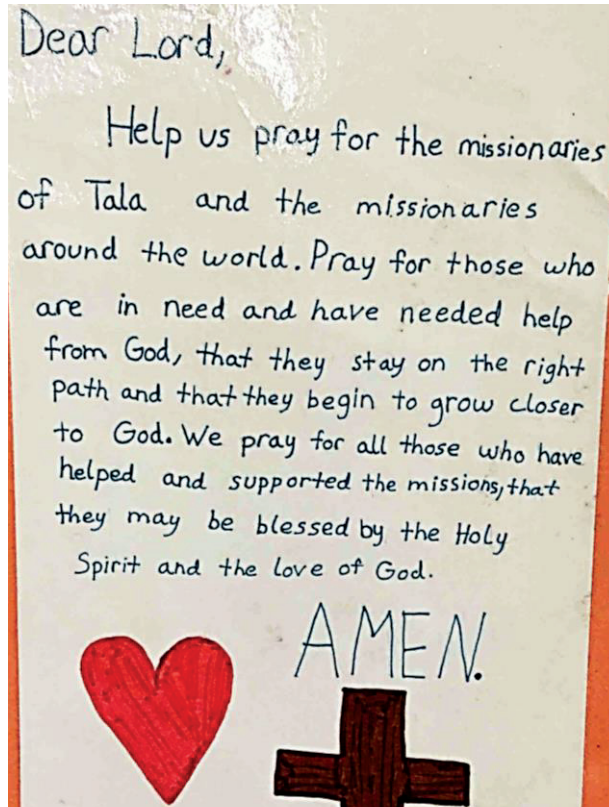 Dear Lord,
Help us pray for the missionaries
of Tala and the missionaries
around the world. Pray for those who
are in need and have needed help
from God, that they stay on the right
path and that they begin to grow closer
to God. We pray for all those who have
helped and supported the missions, that
they may be blessed by the Holy
Spirit and the love of God.
AMEN.